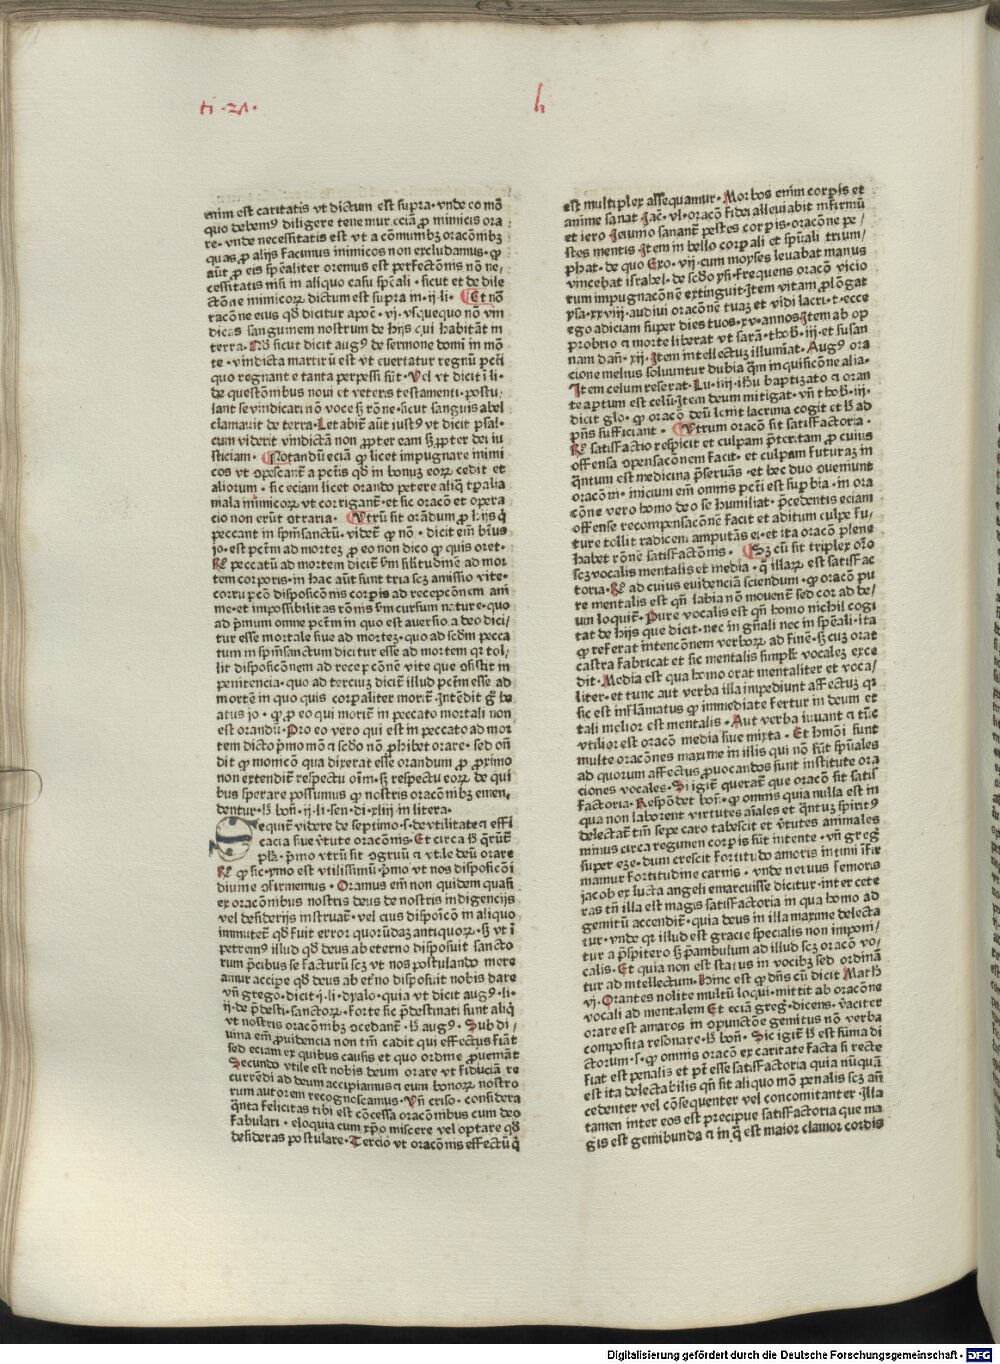 ti · 21 ·
h
enim est caritatis vt dictum est supra · vnde eo mō
quo debemꝰ diligere tenemur eciā ꝓ inimicis ora
re · vnde necessitatis est vt a cōmunibꝫ oracōnibꝫ
quas ꝓ alijs facimus inimicos non excludamus · ꝙ
aūt ꝓ eis spēaliter oremus est perfectōnis nō ne/
cessitatis nisi in aliquo casu spēcali · sicut et de dile
ctōne inimicoꝝ dictum est supra in · ij · li · Et nō
racōne eius qd̄ dicitur apoc̄ · vj · vsquequo nō vin
dicas sanguinem nostrum de hijs qui habitāt in
terra · Nō sicut dicit augꝰ de sermone domī in mō
te · vindicta martirū est vt euertatur regnū pcti
quo regnante tanta perpessi sūt · Vel vt dicit ī li ·
de questōnibus noui et veteris testamenti · postu/
lant se vindicari nō voce sꝫ rōne · sicut sanguis abel
clamauit de terra · Letabit̄ aūt iustꝰ vt dicit psal ·
cum viderit vindictā non ꝓpter eam sꝫ ꝓpter dei iu
sticiam · Notandū eciā ꝙ licet impugnare inimi
cos vt cpescant̄ a pctīs qd̄ in bonuꝫ eoꝝ cedit et
aliorum · sic eciam licet orando petere aliq̄ tp̄alia
mala inimicoꝝ vt corrigant̄ · et sic oracō et opera
cio non erūt ɔtraria · Vtrū sit orādum ꝓ hijs q̄
peccant in spm̄sanctū · videt̄ ꝙ nō · dicit em̄ btūs
jo · est pctm̄ ad morteꝫ ꝓ eo non dico ꝙ quis oret ·
R̄ peccatū ad mortem dicit̄ ẜm silitudinē ad mor
tem corporis · in hac aūt sunt tria scꝫ amissio vite ·
corrupcō disposicōnis corpis ad recepcōnem ani
me · et impossibilitas rōnis ẜm cursum nature · quo
ad pmum omne pctm̄ in quo est auersio a deo dici/
tur esse mortale siue ad morteꝫ · quo ad scdm̄ pecca
tum in spm̄sanctum dicitur esse ad mortem qr tol/
lit disposicōnem ad recepcōnē vite que ɔsistit in
penitencia · quo ad tercium dicit̄ illud pctm̄ esse ad
mortē in quo quis corpaliter morit̄ · Intēdit g̊ be
atus jo · ꝙ ꝓ eo qui morit̄ in peccato mortali non
est orandū · Pro eo vero qui est in peccato ad mor
tem dicto pmo mō ⁊ scdo nō ꝓhibet orare · sed on̄
dit ꝙ monicō qua dixerat esse orandum ꝓ ꝓximo
non extendit̄ respectu oīm · sꝫ respectu eoꝝ de qui
bus sperare possumus ꝙ nostris oracōnibꝫ emen/
dentur · h̄ bon̄ · ij · li · sen · di · xliij in litera ·
Sequit̄ videre de septimo · s · de vtilitate ⁊ effi
cacia siue v̄tute oracōnis · Et circa h̄ q̄rūt̄
pla · pmo vtrū sit ɔgruū ⁊ vtile deū orare
R̄ ꝙ sic · ymo est vtilissimū · pmo vt nos disposicōi
diuine ɔfirmemus · Oramus em̄ non quidem quasi
ex oracōnibus nostris deus de nostris indigencijs
vel desiderijs instruat̄ · vel eius disposicō in aliquo
immutet̄ qd̄ fuit error quorūdaꝫ antiquoꝝ · sꝫ vt ī
petremꝰ illud qd̄ deus ab eterno disposuit sancto
rum pcibus se facturū scꝫ vt nos postulando mere
amur accipe qd̄ deus ab etno disposuit nobis dare
vn̄ grego · dicit · j · li · dyalo · quia vt dicit augꝰ · li ·
ij · de pdesti · sanctoꝝ · forte sic pdestinati sunt aliq̄
vt nostris oracōnibꝫ ɔcedant̄ · h̄ augꝰ · Sub di/
uina em̄ ꝓuidencia non tm̄ cadit qui effectus fiāt
sed eciam ex quibus causis et quo ordine ꝓueniāt
Secundo vtile est nobis deum orare vt fiduciā re
currēdi ad deum accipiamus ⁊ eum bonoꝝ nostro
rum autorem recognoscamus · Vn̄ criso · considera
q̄nta felicitas tibi est cōcessa oracōnibus cum deo
fabulari · eloquia cum xp̄o miscere vel optare qd̄
desideras postulare · Tercio vt oracōnis effectū q̄
est multiplex assequamur · Morbos enim corpis et
anime sanat Jac̄ · vl · oracō fidei alleuiabit infirmū
et iero Jeiunio sanant̄ pestes corpis · oracōne pe/
stes mentis · Item in bello corpali et spūali trium/
phat · de quo Exo · vij · cum moyses leuabat manus
vincebat israhel · de scdo ysi · frequens oracō vicio
rum impugnacōnē extinguit · Item vitam ꝓlōgat
ysa · xxviij · audiui oracōne tuaꝫ et vidi lacri · t · ecce
ego adiciam super dies tuos · xv · annos · Item ab op
probrio ⁊ morte liberat vt sarā · thob̄ · iij · et susan
nam dan̄ · xij · Item intellectuꝫ illumīat · Augꝰ ora
cione melius soluuntur dubia q̄m inquisicōne alia ·
Item celum reserat · Lu · iij · ihū baptizato ⁊ oran
te aptum est celū · Item deum mitigat · vn̄ thob̄ · iij ·
dicit glo · ꝙ oracō deū lenit lacrima cogit et h̄ ad
pn̄s sufficiant · Vtrum oracō sit satisfactoria ·
R̄ satisfactio respicit et culpam pteritam ꝓ cuius
offensa ɔpensacōnem facit · et culpam futuraꝫ in
q̄ntum est medicina pseruās · et hec duo ɔueniunt
oracōni · inicium em̄ omnis pcti est supbia · in ora
cōne vero homo deo se humiliat · pcedentis eciam
offense recompensacōnē facit et aditum culpe fu/
ture tollit radicem amputās ei · et ita oracō plene
habet rōnē satisfactōnis · Sꝫ cū sit triplex orō
scꝫ vocalis mentalis et media · q̄ illaꝝ est satisfac
toria · R̄ ad cuius euidenciā sciendum · ꝙ oracō pu
re mentalis est qn̄ labia nō mouent̄ sed cor ad de/
um loquit̄ · Pure vocalis est qn̄ homo nichil cogi
tat de hijs que dicit · nec in gn̄ali nec in spēali · ita
ꝙ referat intencōnem verboꝝ ad finē · sꝫ cuꝫ orat
castra fabricat et sic mentalis simpl̄r vocaleꝫ exce
dit · Media est qua homo orat mentaliter et voca/
liter · et tunc aut verba illa impediunt affectuꝫ qr
sic est inflāmatus ꝙ immediate fertur in deum et
tali melior est mentalis · Aut verba iuuant ⁊ tūc
vtilior est oracō media siue mixta · Et hmōi sunt
multe oracōnes maxime in illis qui nō sūt spūales
ad quorum affectus ꝓuocandos sunt institute ora
ciones vocales · Si igit̄ querat̄ que oracō sit satis
factoria · Respōdet bon̄ · ꝙ omnis quia nulla est in
qua non laborent virtutes aīales et q̄ntuꝫ spiritꝰ
delectat̄ tm̄ sepe caro tabescit et v̄tutes animales
minus circa regimen corpis sūt intente · vn̄ greg̊
super eze · dum crescit fortitudo amoris intimi īfir
mamur fortitudine carnis · vnde neruus femoris
jacob ex lucta angeli emarcuisse dicitur · inter cete
ras tn̄ illa est magis satisfactoria in qua homo ad
gemitū accendit̄ · quia deus in illa maxime delecta
tur · vnde qr illud est gracie specialis non imponi/
tur a psbitero sꝫ pambulum ad illud scꝫ oracō vo/
calis · Et quia non est status in vocibꝫ sed ordinā
tur ad intellectum · Hinc est ꝙ dn̄s cū dicit Math
vj · Orantes nolite multū loqui · mittit ab oracōne
vocali ad mentalem Et eciā greg̊ · dicens · v̄aciter
orare est amaros in ɔpunctōe gemitus nō verba
composita resonare · h̄ bon̄ · Sic igit̄ h̄ est sūma di
ctorum · s · ꝙ omnis oracō ex caritate facta si recte
fiat est penalis et pt̄ esse satisfactoria quia nūquā
est ita delectabilis qn̄ sit aliquo mō penalis scꝫ an̄
cedenter vel cōsequenter vel concomitanter · Illa
tamen inter eos est precipue satisfactoria que ma
gis est gemibunda ⁊ in q̄ est maior clamor cordis
Digitalisierung gefördert durch die Deutsche Forschungsgemeinschaft - DFG